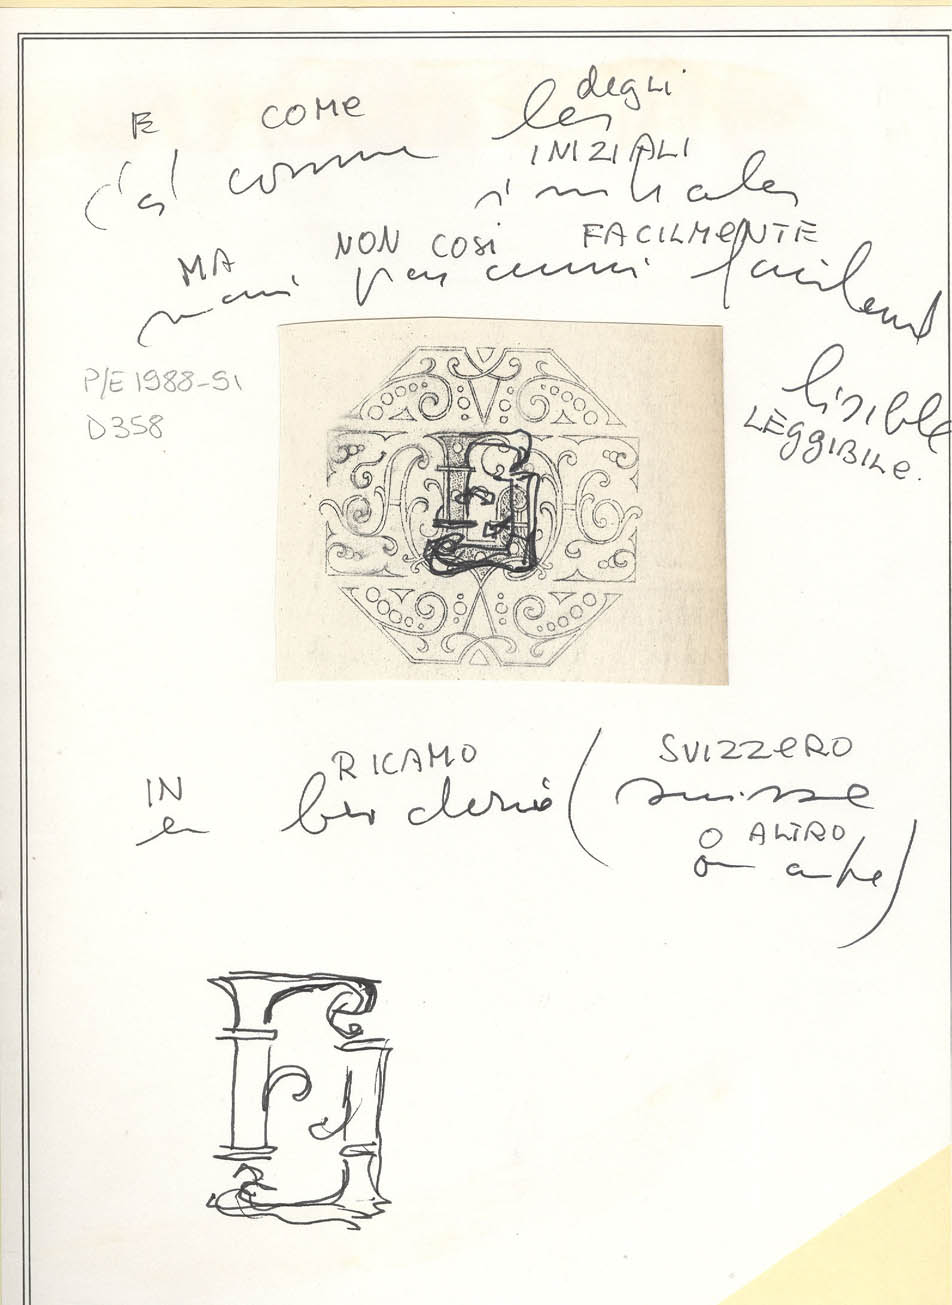 E COME degli
c'est comme les
INIZIALI
initiales
MA NON COSÌ FACILMENTE
mais pas aussi facilement
P/E 1988-91
D358
lisible
LEGGIBILE.
IN RICAMO ( SVIZZERO
en broderie suisse
O ALTRO
ou autre )